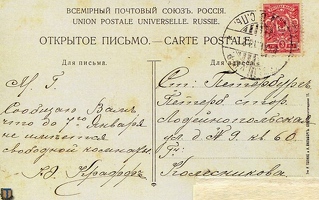 ВСЕМІРНЫЙ ПОЧТОВЫЙ СОЮЗЪ. РОССІЯ.
UNION POSTALE UNIVERSELLE. RUSSIE.
ОТКРЫТОЕ ПИСЬМО. — CARTE POSTALE
Для письма.
М. Г.
Сообщаю Вамъ
что до 7го Января
не имѣется
свободной комнаты
Для адреса.
Ст. Петербургъ
Петерб. стор.
Лодейнопольская
ул д. № 9. кв 60.
Гж
Колесникова